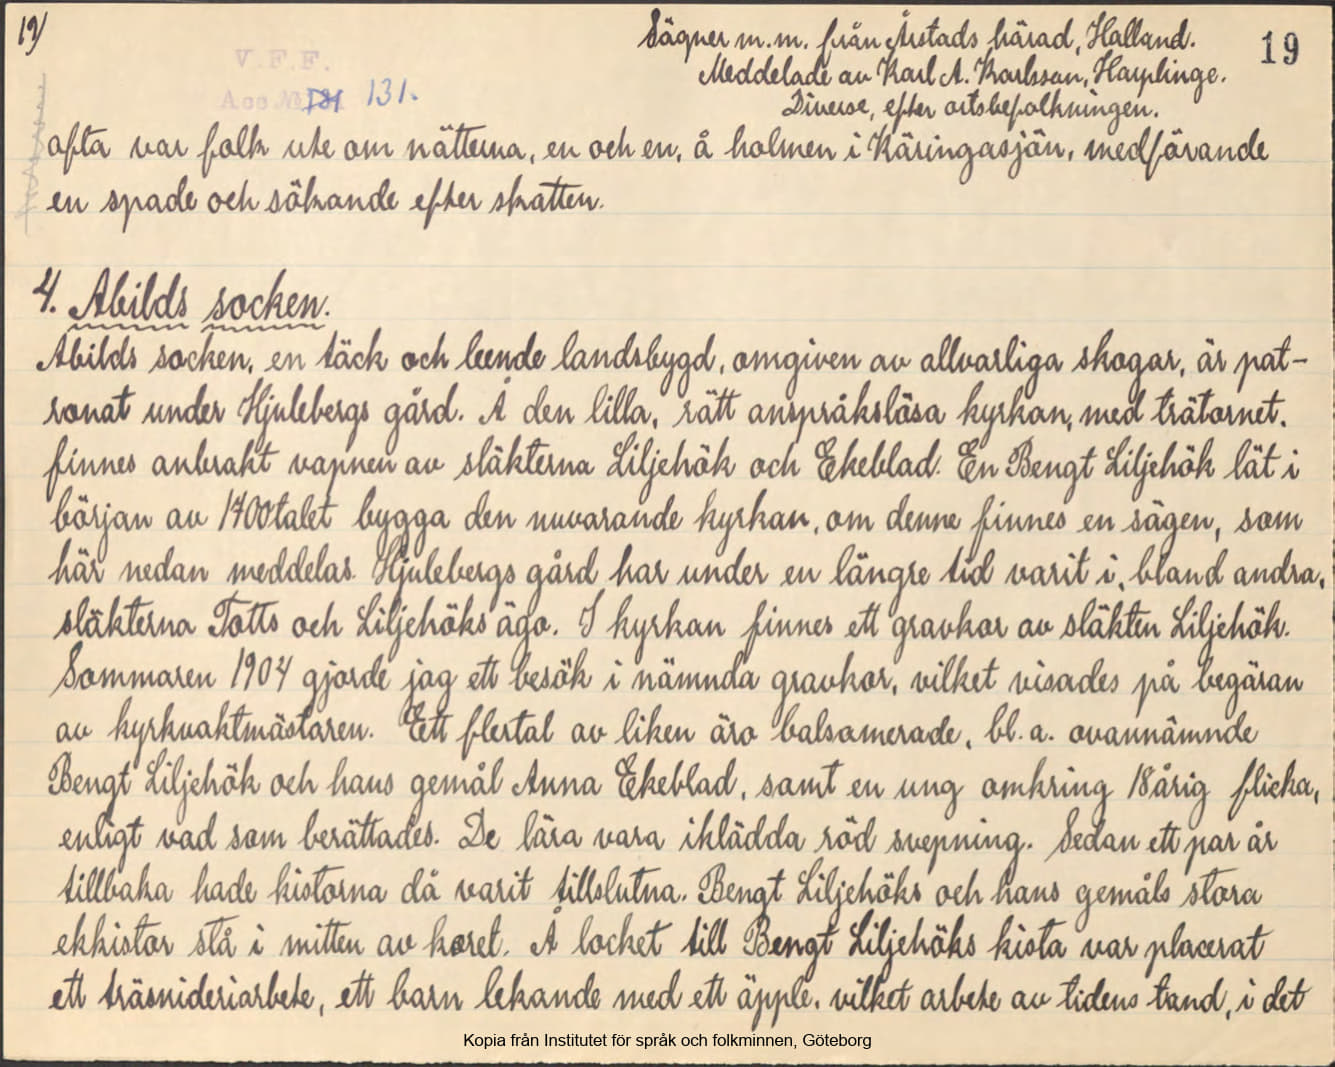 12)
Sägner m.m. från Årstads härad, Halland.
19
Meddelade av Karl A. Karlsson, Harplinge.
V.F.F.
Acc. No 131.
Diverse, efter ortsbefolkningen.
ofta var folk ute om nätterna, en och en, å holmen i Käringasjön, medförande
en spade och sökande efter skatten.
4. Abilds socken.
Abilds socken, en täck och leende landsbygd, omgiven av allvarliga skogar, är pat-
ronat under Hjulebergs gård. Å den lilla, rätt anspråkslösa kyrkan, med trätornet.
finnes anbrakt vapnen av släkterna Liljehök och Ekeblad. En Bengt Liljehök lät i
början av 1400talet bygga den nuvarande kyrkan, om denne finnes en sägen, som
här nedan meddelas. Hjulebergs gård har under en längre tid varit i, bland andra,
släkterna Totts och Liljehöks ägo. I kyrkan finnes ett gravkor av släkten Liljehök.
Sommaren 1904 gjorde jag ett besök i nämnda gravkor, vilket visades på begäran
av kyrkvaktmästaren. Ett flertal av liken äro balsamerade, bl. a. ovannämnde
Bengt Liljehök och hans gemål Anna Ekeblad, samt en ung omkring 18årig flicka,
enligt vad som berättades. De lära vara iklädda röd svepning. Sedan ett par år
tillbaka hade kistorna då varit tillslutna. Bengt Liljehöks och hans gemåls stora
ekkistor stå i mitten av koret. Å locket till Bengt Liljehöks kista var placerat
ett träsnideriarbete, ett barn lekande med ett äpple, vilket arbete av tidens tand, i det
Kopia från Institutet för språk och folkminnen, Göteborg